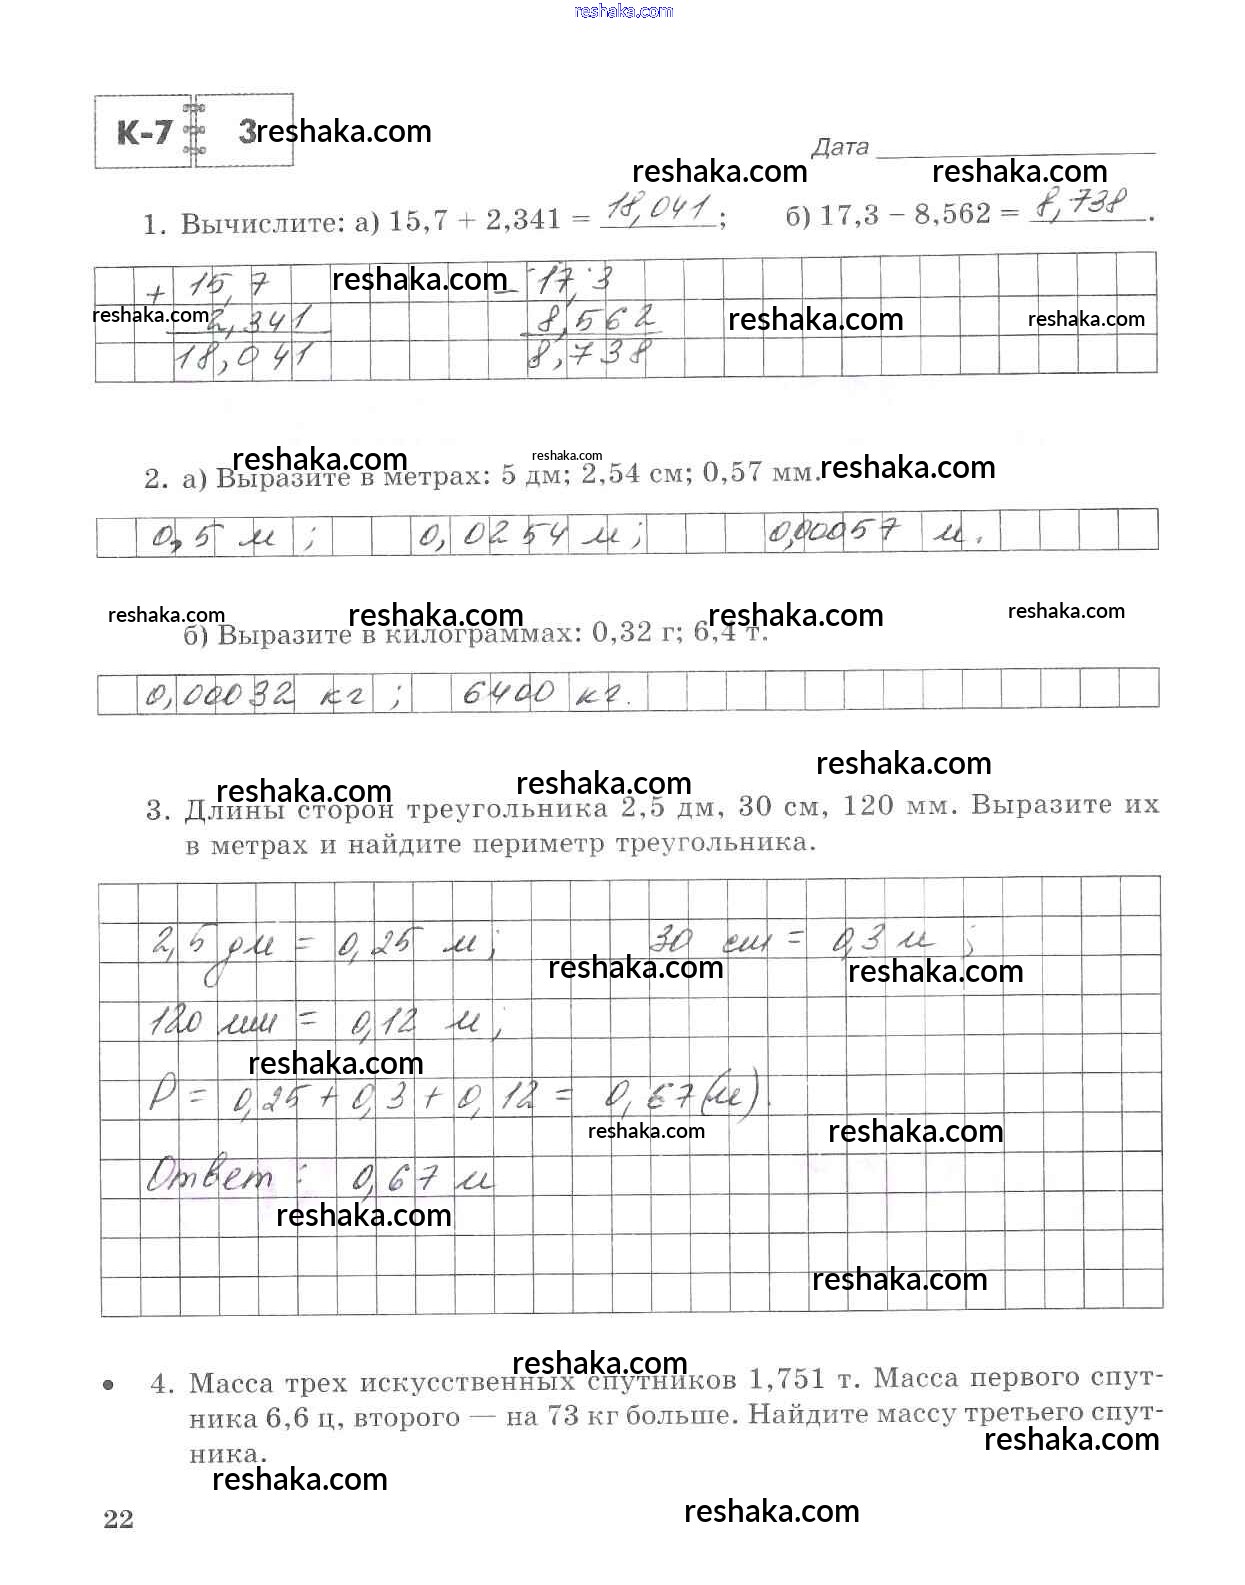 reshaka.com
К-7 3 reshaka.com
Дата
reshaka.com reshaka.com
1. Вычислите: а) 15,7 + 2,341 = 18,041; б) 17,3 – 8,562 = 8,738.
+ 15,7 reshaka.com – 17,3
reshaka.com 2,341 8,562 reshaka.com reshaka.com
18,041 8,738
reshaka.com reshaka.com reshaka.com
2. а) Выразите в метрах: 5 дм; 2,54 см; 0,57 мм.
0,5 м; 0,0254 м; 0,00057 м.
reshaka.com reshaka.com reshaka.com reshaka.com
б) Выразите в килограммах: 0,32 г; 6,4 т.
0,00032 кг; 6400 кг.
reshaka.com reshaka.com reshaka.com
3. Длины сторон треугольника 2,5 дм, 30 см, 120 мм. Выразите их
в метрах и найдите периметр треугольника.
2,5 дм = 0,25 м; 30 см = 0,3 м;
reshaka.com reshaka.com
120 мм = 0,12 м;
reshaka.com
P = 0,25 + 0,3 + 0,12 = 0,67 (м).
reshaka.com reshaka.com
Ответ: 0,67 м
reshaka.com
reshaka.com
reshaka.com
• 4. Масса трех искусственных спутников 1,751 т. Масса первого спут-
ника 6,6 ц, второго — на 73 кг больше. Найдите массу третьего спут-
reshaka.com
ника.
reshaka.com
22 reshaka.com